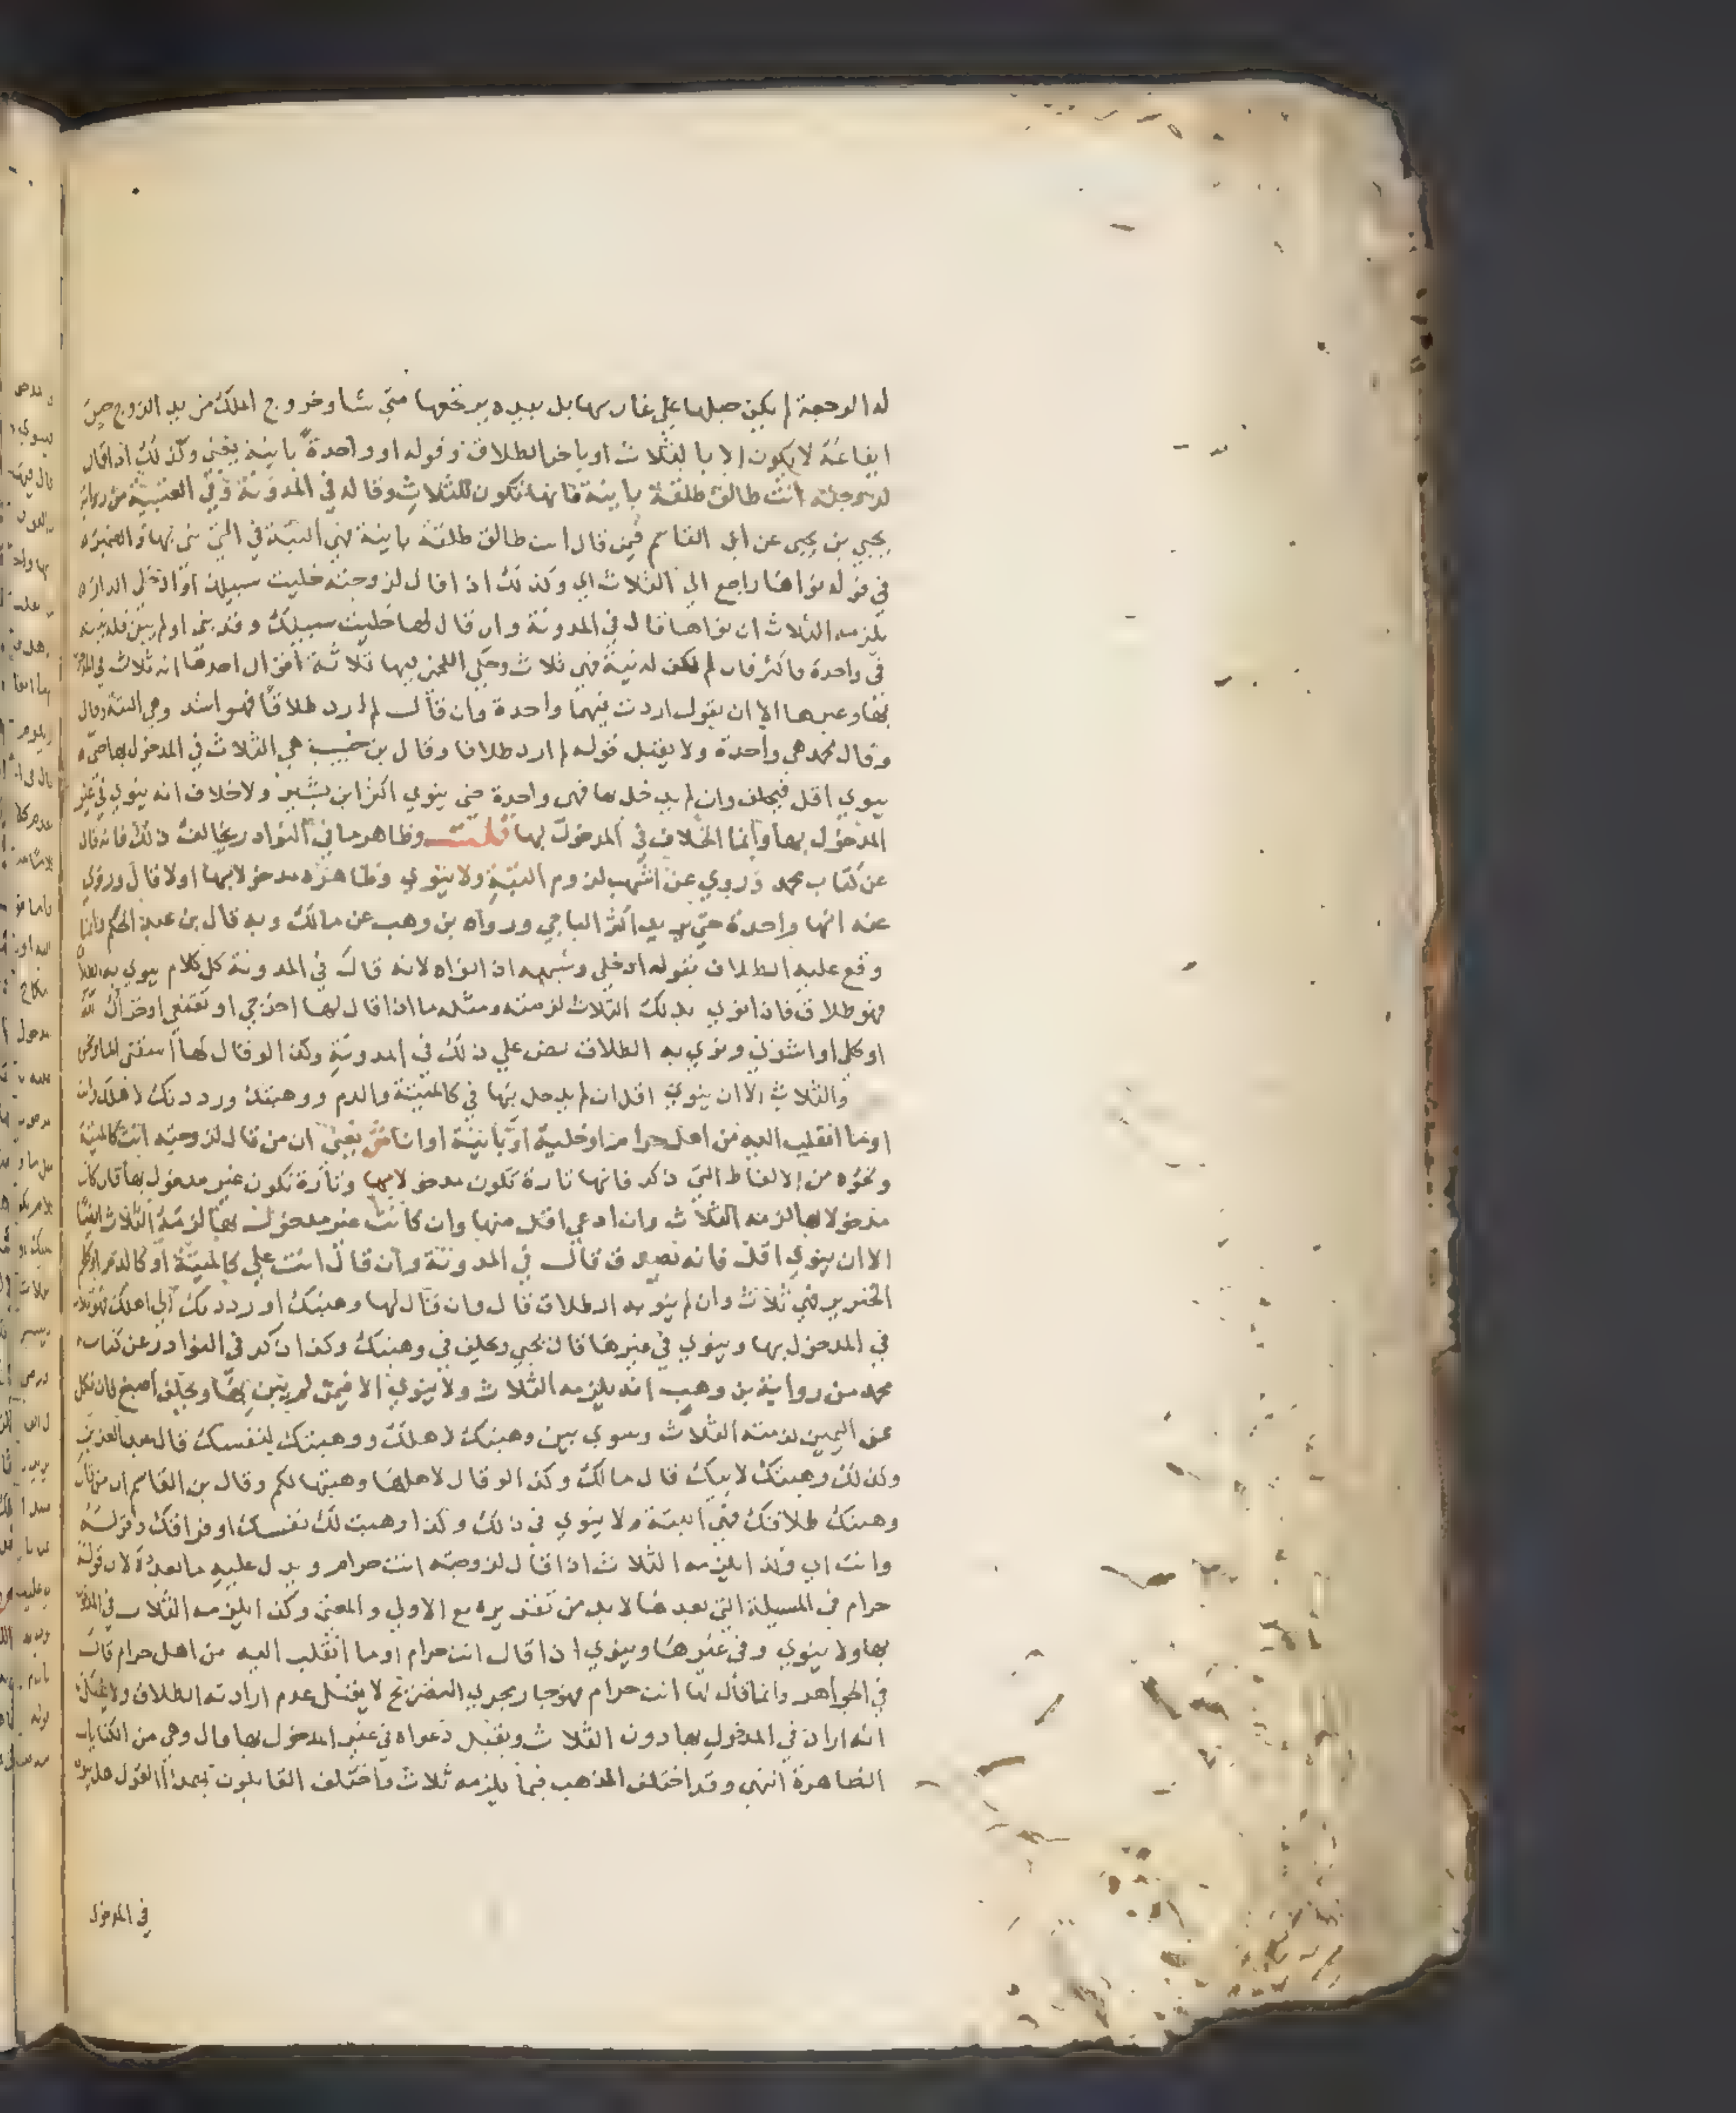 له الرجعة لم يكن حبلها علي غاربها بل بيده يرتجعها متي شا وخروج الملك من يد الزوج حين
ايقاعه لا يكون الا بالثلاث او باخر الطلاق وقوله او واحدة باينة يعني وكذلك اذا قال
لزوجته انت طالق طلقة باينة فانها تكون للثلاث وقاله في المدونة وفي العتبية من رواية
يحيي بن يحيي عن ابن القاسم فيمن قال انت طالق طلقة باينة فهي البتة في التي بني بها والضمير
في قوله نواها راجع الي الثلاث اي وكذلك اذا قال لزوجته خليت سبيلك او ادخلي الدار
يلزمه الثلاث ان نواها قال في المدونة وان قال لها خليت سبيلك وقد بني او لم يبن فله نيته
في واحدة فاكثر فان لم تكن له نية فهي ثلاث وحكي اللخمي فيها ثلاثة اقوال احدها انه ثلاث في
بها وغيرها الا ان يقول اردت فيهما واحدة وان قال لم ارد طلاقا فهو اشد وهي البتة وقال
وقال محمد هي واحدة ولا يقبل قوله لم ارد طلاقا وقال بن حبيب هي الثلاث في المدخول بها حتي
ينوي اقل فيحلف وان لم يدخل بها فهي واحدة حتي ينوي اكثر ابن بشير ولا خلاف انه ينوي في غير
المدخول بها وانما الخلاف في المدخول بها قلت وظاهر ما في النوادر يخالف ذلك فانه قال
عن كتاب محمد وروي عن اشهب لزوم البتة ولا ينوي وظاهره مدخولا بها اولا قال وروي
عنه انها واحدة حتي يريد اكثر الباجي ورواه بن وهب عن مالك وبه قال بن عبد الحكم وانما
وقع عليه الطلاق بقوله ادخلي وشبهه اذا نواه لانه قال في المدونة كل كلام ينوي به
فهو طلاق فاذا نوي بذلك الثلاث لزمته ومثله ما اذا قال لها اخرجي او تقنعي او
او كلي او اشربي ونوي به الطلاق نص علي ذلك في المدونة وكذا لو قال لها اسقني الما
والثلاث الا ان ينوي اقل ان لم يدخل بها في كالميتة والدم ووهبتك ورددتك لاهلك وانت
او ما انقلب اليه من اهل حرام او خلية او باينة او انا ش يعني ان من قال لزوجته انت كالميتة
ونحوه من الالفاظ التي ذكر فانها تارة تكون مدخولا بها وتارة تكون غير مدخول بها فان كانت
مدخولا بها لزمه الثلاث وان ادعي اقل منها وان كانت غير مدخول بها لزمه الثلاث ايضا
الا ان ينوي اقل فانه يصدق قال في المدونة وان قال انت علي كالميتة او كالدم او كلحم
الخنزير فهي ثلاث وان لم ينو به الطلاق قال وان قال لها وهبتك او رددتك الي اهلك فهو ثلاث
في المدخول بها وينوي في غيرها قال يحيي ويحلف في وهبتك وكذا ذكر في النوادر عن كتاب
محمد من رواية بن وهب انه يلزمه الثلاث ولا ينوي الا فيمن لم يبن بها ويحلف اصبغ فان نكل
عن اليمين لزمته الثلاث وسوي بين وهبتك لاهلك ووهبتك لنفسك قال عبد العزيز
وكذلك وهبتك لابيك قال مالك وكذا لو قال لاهلها وهبتها لكم وقال بن القاسم ان من قال
وهبتك طلاقك فهي البتة ولا ينوي في ذلك وكذا وهبت لك نفسك او فراقك وقوله
وانت اي وكذا يلزمه الثلاث اذا قال لزوجته انت حرام ويدل عليه ما بعده لان قوله
حرام في المسيلة التي بعدها لا بد من تقديره مع الاولي والمعني وكذا يلزمه الثلاث في
بها ولا ينوي وفي غيرها وينوي اذا قال انت حرام او ما انقلب اليه من اهل حرام قال
في الجواهر وانما قال لها انت حرام فهو جار مجري التصريح لا يقبل عدم ارادته الطلاق ولا
انه اراد في المدخول بها دون الثلاث ويقبل دعواه في غير المدخول بها قال وهي من الكنايات
الظاهرة انتهي وقد اختلف المذهب فيما يلزمه ثلاث فاختلف القايلون بهذا القول هل
في المدخول